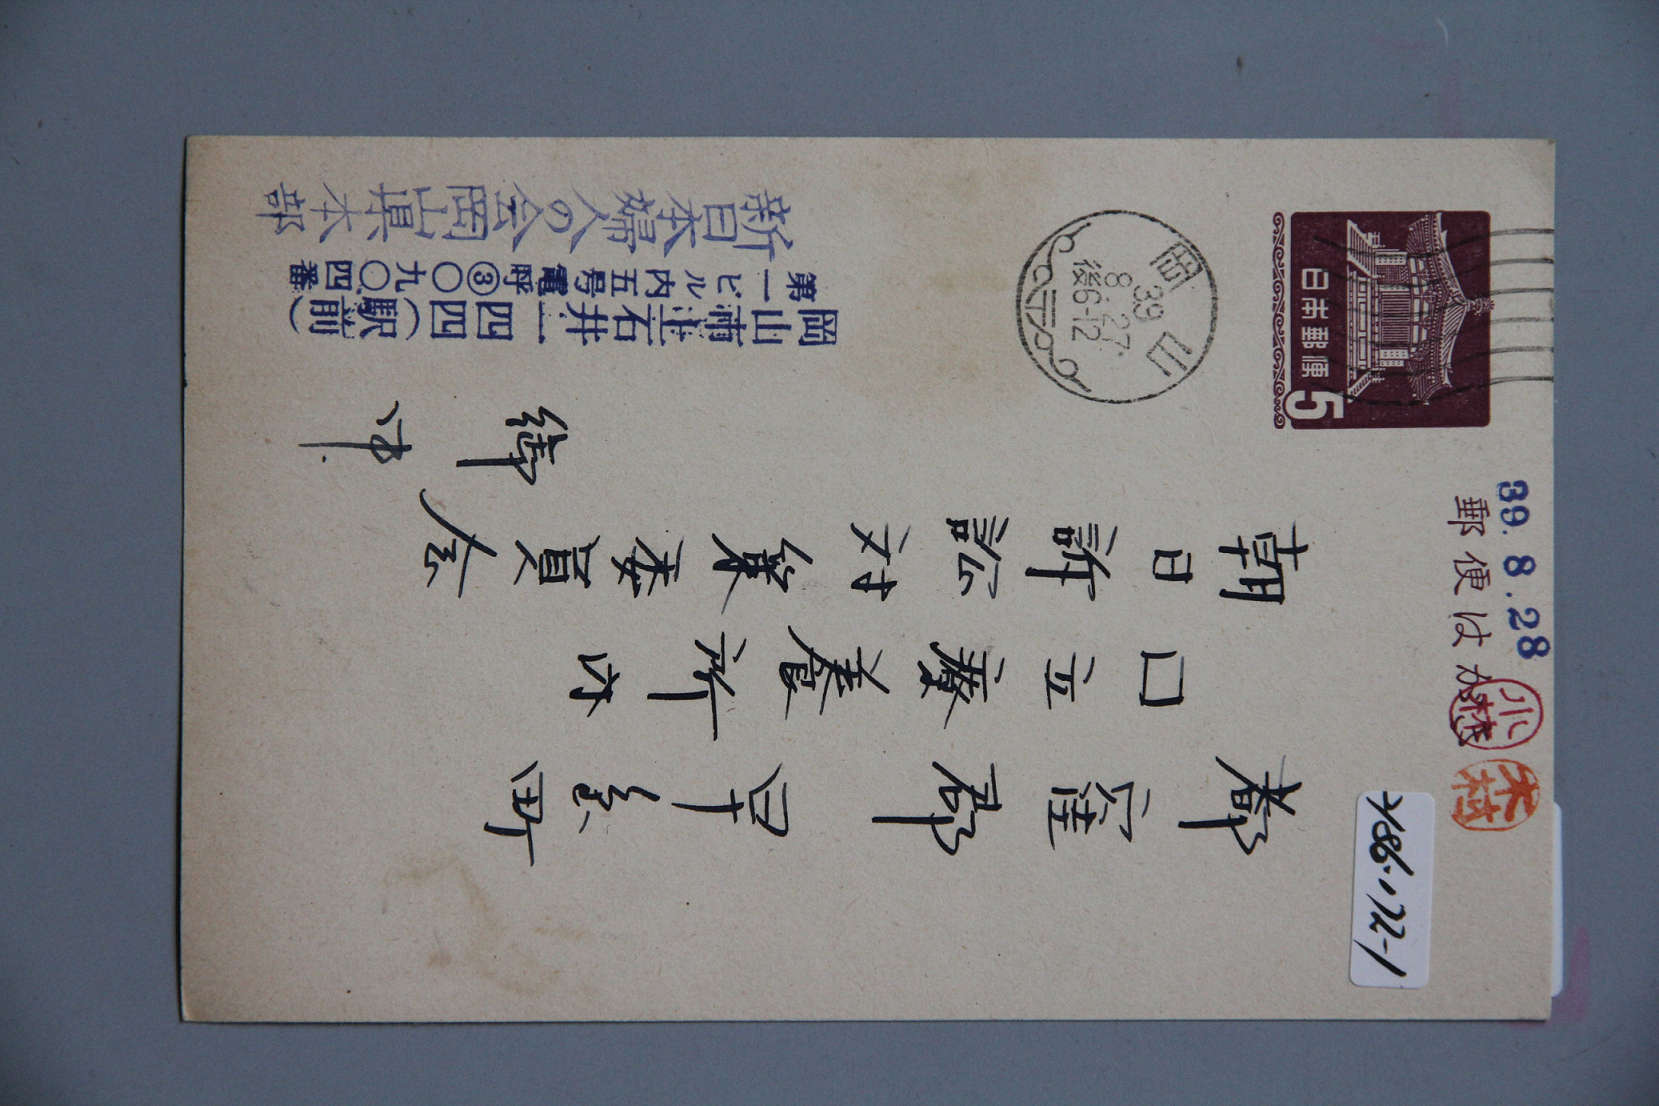 39.8.28
郵便はがき
小林
木村
日本郵便
5
岡山
39
8.27
後6-12
都窪郡早島町
囗立療養所内
朝日訴訟対策委員会
御中
岡山市上石井一四四(駅前)
第一ビル内五号電呼③〇九〇四番
新日本婦人の会岡山県本部